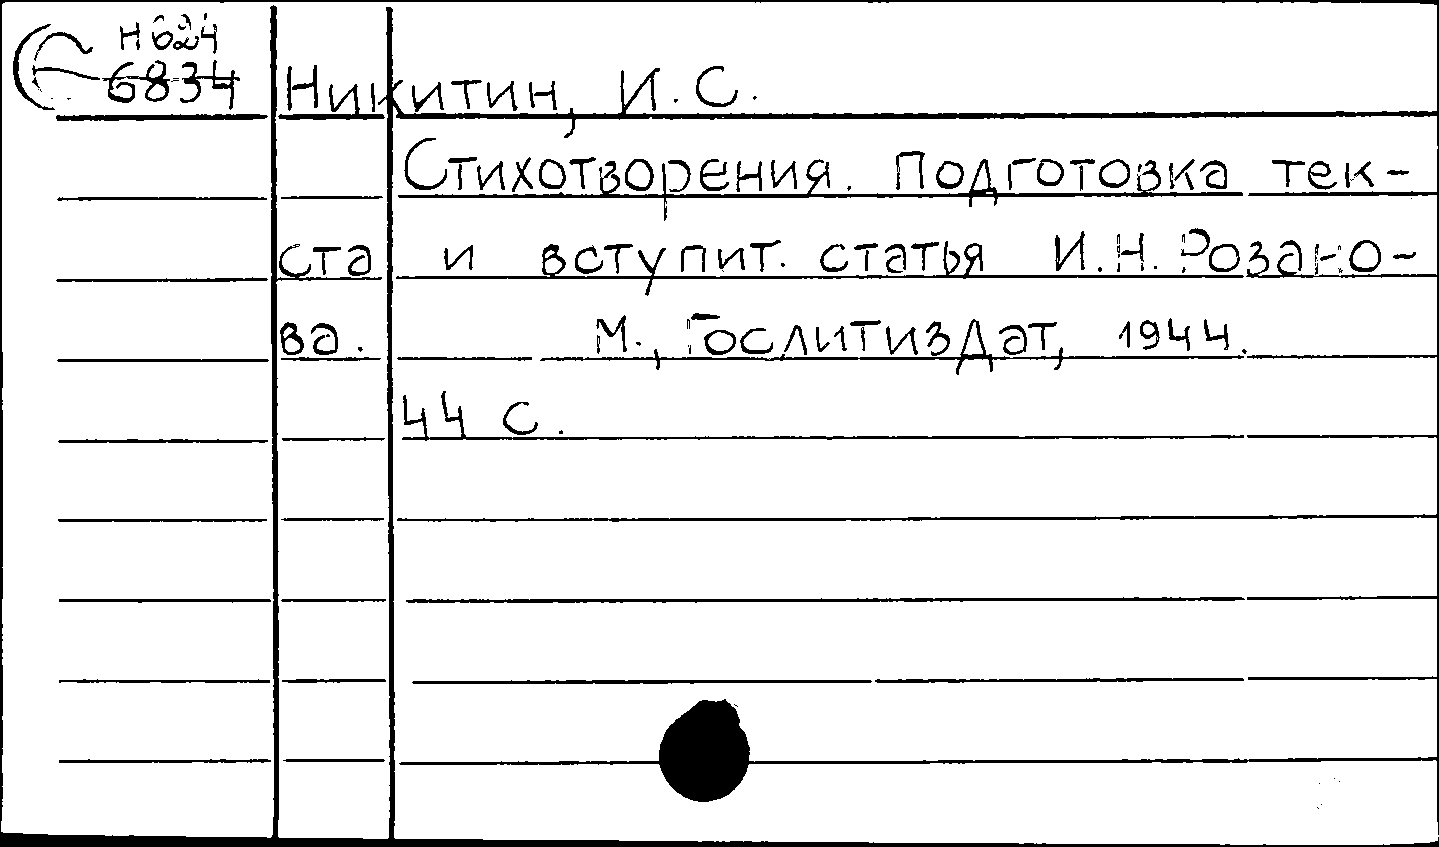 Н624
6834
Никитин, И. С.
Стихотворения. Подготовка тек-
ста и вступит. статья И. Н. Розано-
ва. М., Гослитиздат, 1944.
44 с.